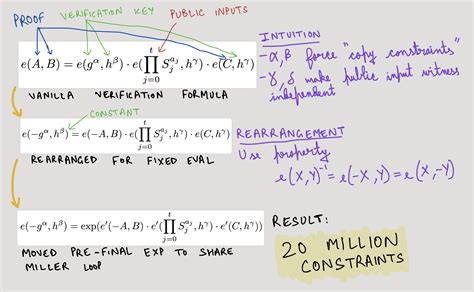 PROOF
VERIFICATION KEY
PUBLIC INPUTS
e(A, B) = e(g^α, h^β) · e(∏_{j=0}^{t} S_j^{a_j}, h^γ) · e(C, h^γ)
VANILLA VERIFICATION FORMULA
CONSTANT
e(−g^α, h^β) = e(−A, B) · e(∏_{j=0}^{t} S_j^{a_j}, h^γ) · e(C, h^γ)
REARRANGED FOR FIXED EVAL
e(−g^α, h^β) = exp(e′(−A, B) · e′(∏_{j=0}^{t} S_j^{a_j}, h^γ) · e′(C, h^γ))
MOVED PRE-FINAL EXP TO SHARE
MILLER LOOP
INTUITION
-α,β force "copy constraints"
-γ, δ make public input witness
independent
REARRANGEMENT
Use property
e(X,Y)^{-1} = e(-X,Y) = e(X,-Y)
RESULT:
20 MILLION
CONSTRAINTS